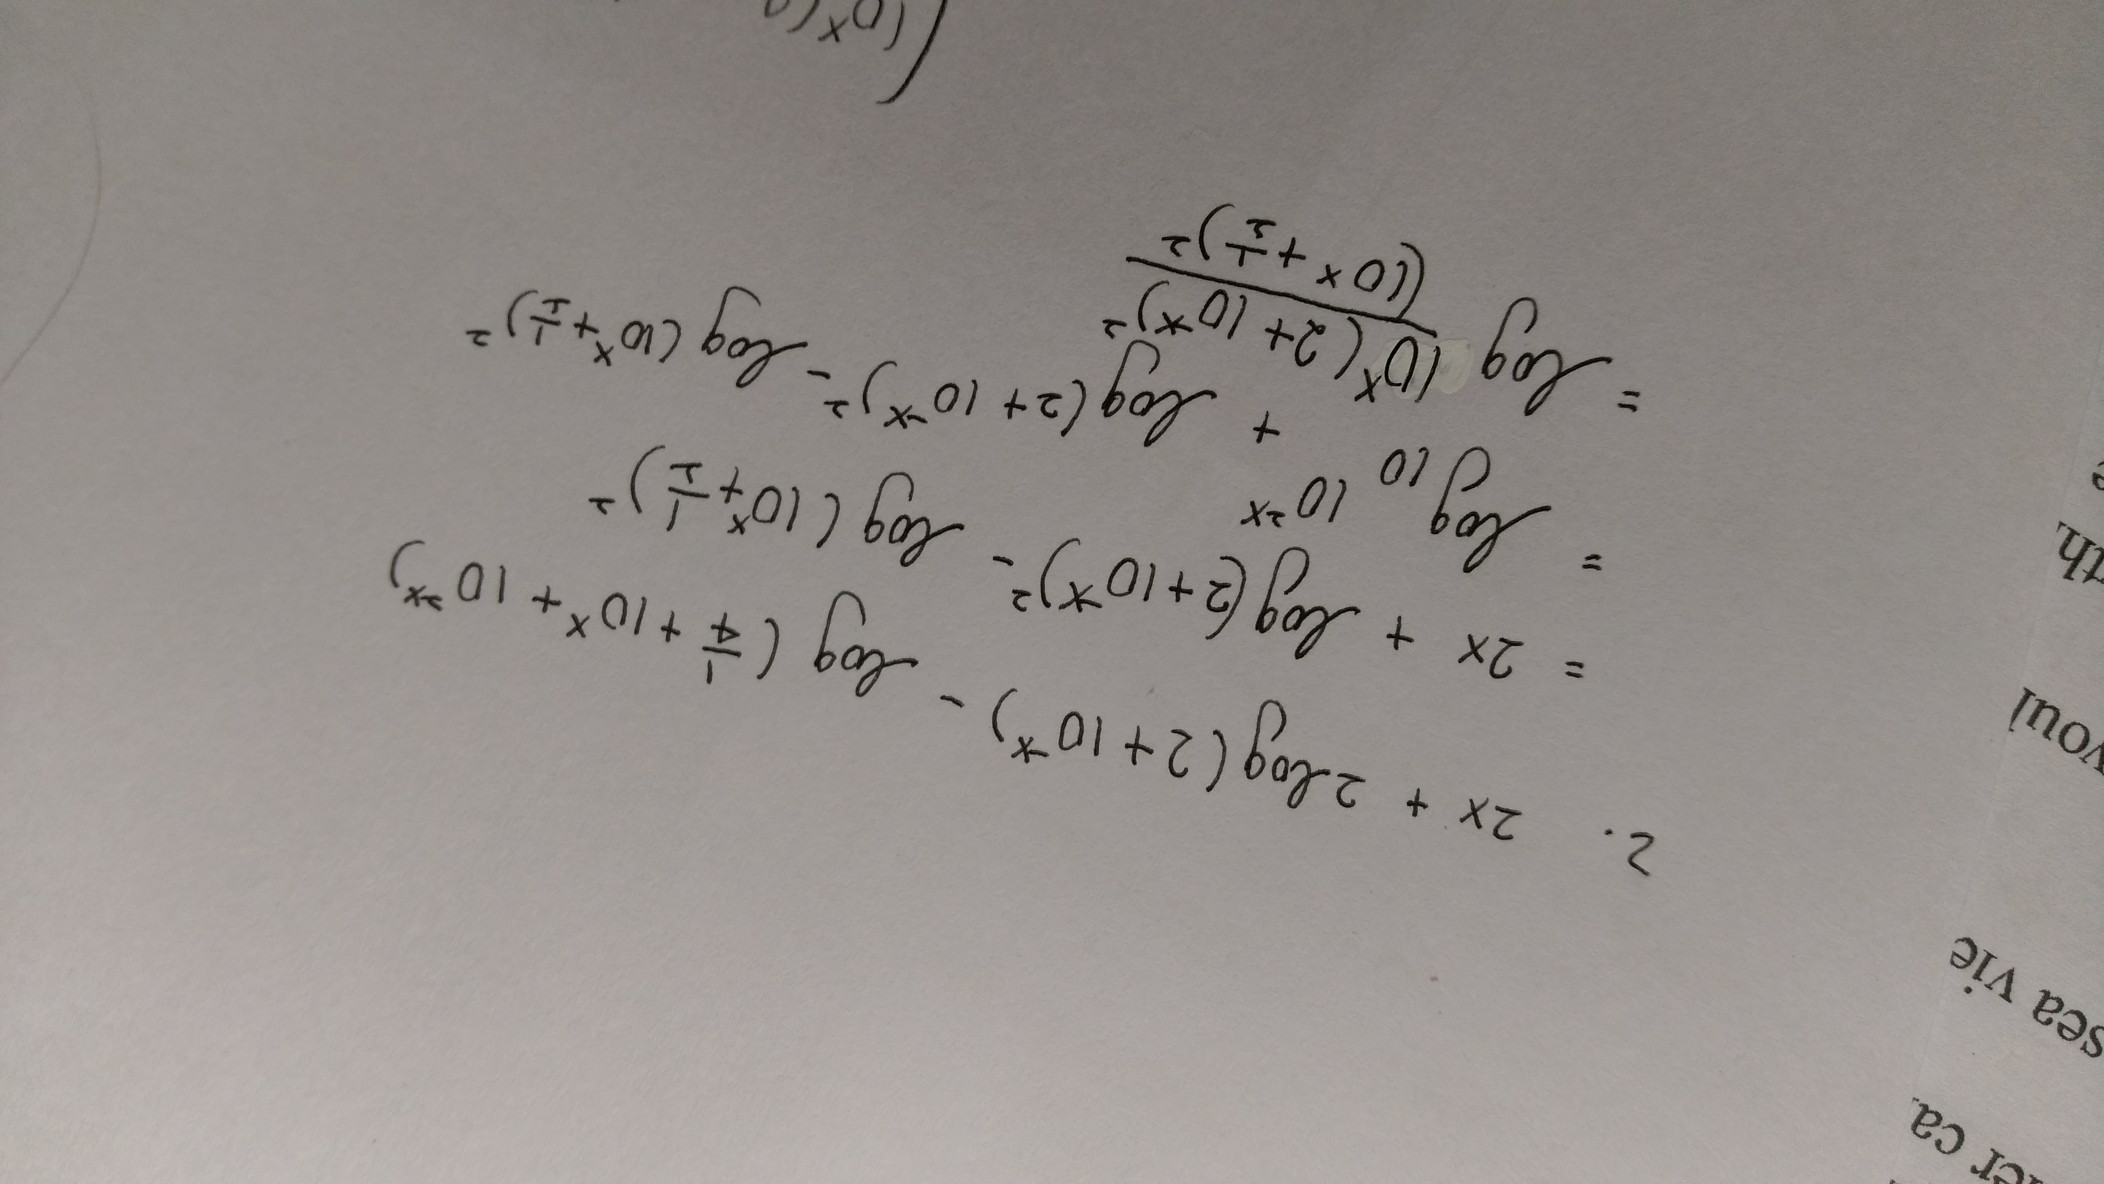 2. 2x + 2log(2+10⁻ˣ) - log(1/4 + 10ˣ + 10²ˣ)
= 2x + log(2+10⁻ˣ)² - log(10ˣ+1/2)²
= log₁₀ 10²ˣ + log(2+10⁻ˣ)² - log(10ˣ+1/2)²
= log (10ˣ(2+10⁻ˣ)²)/(10ˣ+1/2)²
(10ˣ(
er ca
sea vie
voul
th
e